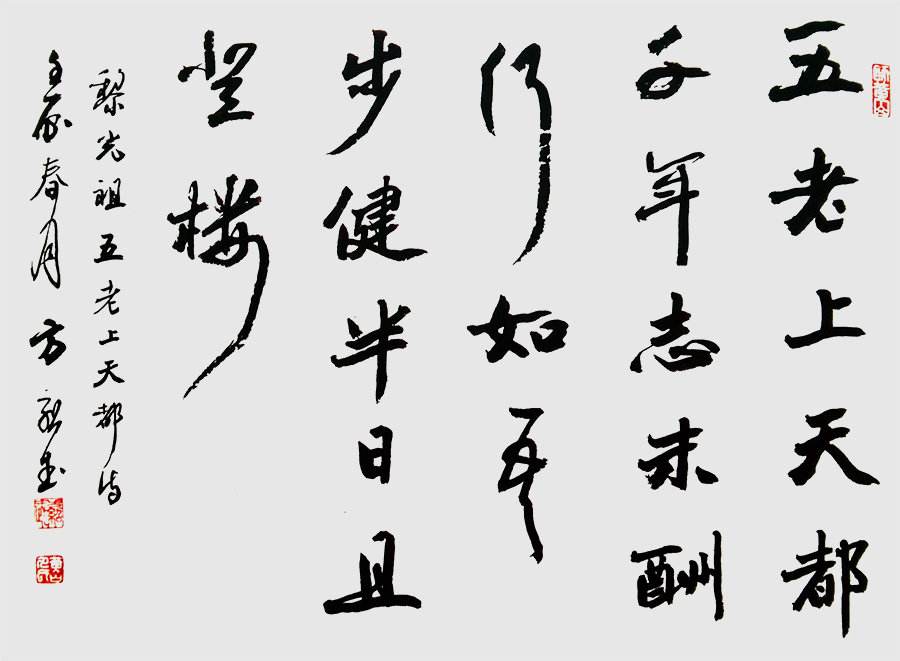 五老上天都
千年志未酬
何如吾
步健半日且
登楼
黎光祖五老上天都诗
春月方书